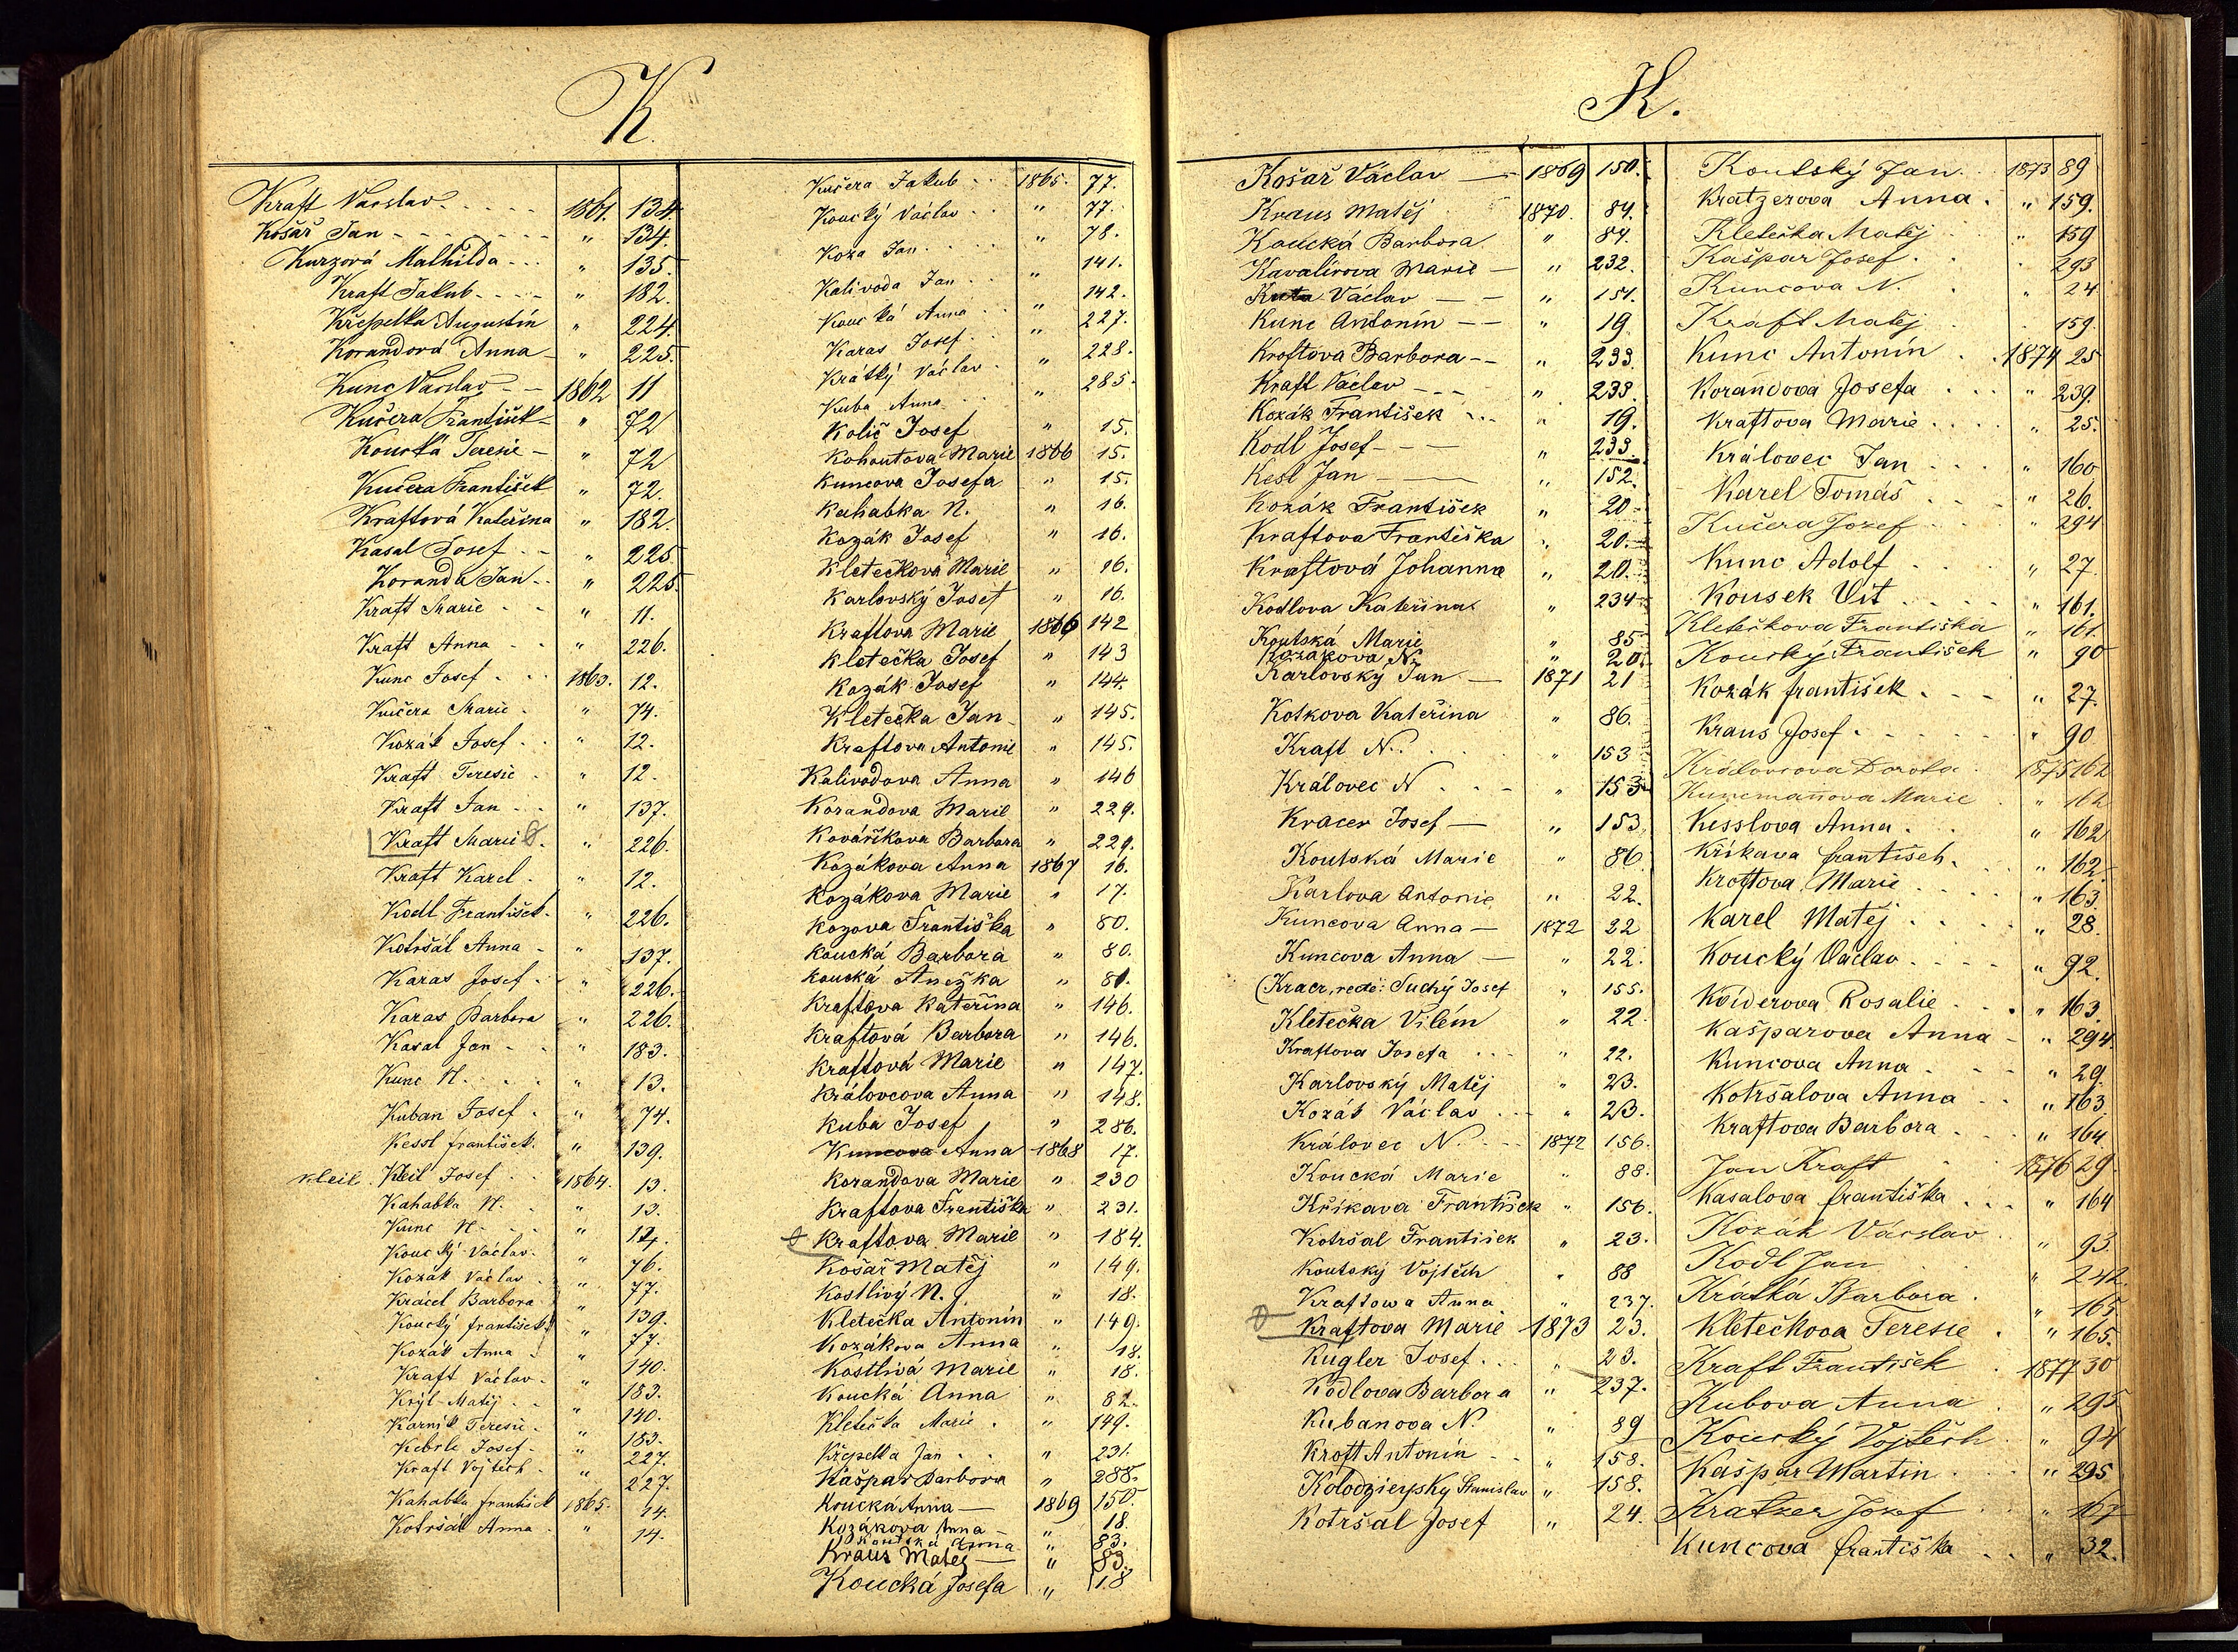 K
Kraft Vácslav 1861. 134.
Košař Jan " 134.
Kurzová Mathilda " 135.
Kraft Jakub " 182.
Křepelka Augustin " 224.
Korandová Anna " 225.
Kunc Vácslav 1862 11
Kučera František " 72
Koucká Teresie " 72
Kučera František " 72.
Kraftová Kateřina " 182.
Kasal Josef " 225
Koranda Jan " 225.
Kraft Marie " 11.
Kraft Anna " 226.
Kunc Josef 1863. 12.
Kučera Marie " 74.
Kozák Josef " 12.
Kraft Teresie " 12.
Kraft Jan " 137.
Kraft Marie " 226.
Kraft Karel " 12.
Kodl František " 226.
Kotršál Anna " 137.
Karas Josef " 226.
Karas Barbora " 226.
Kasal Jan " 183.
Kunc N. " 13.
Kuban Josef " 74.
Kessl František " 139.
Kleil Kleil Josef 1864. 13.
Kahabka N. " 13.
Kunc N. " 14.
Koucký Václav " 76.
Kozák Václav " 77.
Krácel Barbora " 139.
Koucký František " 77.
Kozák Anna " 140.
Kraft Václav " 183.
Krýl Matěj " 140.
Karnik Teresie " 183.
Kebrle Josef " 227.
Kraft Vojtěch " 227.
Kahabka František 1865. 14.
Kotršál Anna " 14.
Kučera Jakub 1865. 77.
Koucký Václav " 77.
Koza Jan " 78.
Kalivoda Jan " 141.
Koucká Anna " 142.
Karas Josef " 227.
Krátký Václav " 228.
Kuba Anna " 285.
Količ Josef " 15.
Kohoutova Marie 1866 15.
Kuncova Josefa " 15.
Kahabka N. " 16.
Kozák Josef " 16.
Kletečkova Marie " 16.
Karlovský Josef " 16.
Kraftova Marie 1866 142
Kletečka Josef " 143
Kozák Josef " 144.
Kletečka Jan " 145.
Kraftova Antonie " 145.
Kalivodova Anna " 146
Korandova Marie " 229.
Kovářikova Barbora " 229.
Kozákova Anna 1867 16.
Kozákova Marie " 17.
Kozova Františka " 80.
Koucká Barbora " 80.
Koucká Anežka " 81.
Kraftova Kateřina " 146.
Kraftová Barbora " 146.
Kraftová Marie " 147.
Královcova Anna " 148.
Kuba Josef " 286.
Kuncova Anna 1868 17.
Korandova Marie " 230
Kraftova Františka " 231.
Kraftova Marie " 184.
Košař Matěj " 149.
Kostlivý N. " 18.
Kletečka Antonín " 149.
Kozákova Anna " 18.
Kostlivá Marie " 18.
Koucká Anna " 82.
Kletečka Marie " 149.
Křepelka Jan " 231.
Kašpar Barbora " 288.
Koucka Anna 1869 150.
Kozákova Anna " 18.
Koutská Anna " 83.
Kraus Matěj " 83.
Koucká Josefa " 18
K.
Košař Václav 1869 150.
Kraus Matěj 1870. 84.
Koucká Barbora " 84.
Kavalirova Marie " 232.
Václav " 151.
Kunc Antonín " 19.
Kroftova Barbora " 233.
Kraft Václav " 233.
Kozák František " 19.
Kodl Josef " 233.
Kesl Jan " 152.
Kozák František " 20
Kraftova Františka " 20.
Kraftová Johanna " 20.
Kodlova Kateřina " 234
Koutská Marie " 85
Kozákova N. " 20.
Karlovský Jan 1871 21
Kotkova Kateřina " 86.
Kraft N. " 153
Královec N " 153
Kracer Josef " 153
Koutská Marie " 86
Karlova Antonie " 22.
Kuncova Anna 1872 22
Kuncova Anna " 22.
(Kracr, recte: Suchý Josef " 155.
Kletečka Vilém " 22
Kraftova Josefa " 22.
Karlovský Matěj " 23.
Kozák Václav " 23.
Královec N. 1872 156.
Koucká Marie " 88.
Křikava František " 156.
Kotršal František " 23.
Koutský Vojtěch " 88
Kraftowa Anna " 237.
Kraftova Marie 1873 23.
Kugler Josef " 23.
Kodlova Barbora " 237.
Kubanova N. " 89
Kroft Antonín " 158.
Stanislav " 158.
Kotršal Josef " 24.
Koutský Jan 1873 89
Kratzerova Anna " 159.
Kletečka Matěj " 159
Kašpar Josef 293
Kuncova N. " 24
Kraft Matěj 159.
Kunc Antonín 1874 25
Korandova Josefa " 239.
Kraftova Marie " 25.
Královec Jan " 160
Karel Tomáš " 26.
Kučera Josef " 294
Kunc Adolf " 27
Kousek Vít " 161.
Kletečkova Františka " 161.
Koucký František " 90
Kozák František " 27.
Kraus Josef " 90
Královcova Dorota 1875 162
Kuncmanova Marie " 162
Kesslova Anna " 162
Křikava František " 162
Kroftova Marie " 163.
Karel Matěj " 28.
Koucký Václav " 92.
Rosalie " 163.
Kašparova Anna " 294.
Kuncova Anna " 29.
Kotršalova Anna " 163.
Kraftova Barbora " 164
Jan Kraft 1876 29.
Kasalova Františka " 164
Kozák Vácslav " 93.
Kodl Jan " 242.
Krátká Barbora " 165
Kletečkova Teresie " 165.
Kraft František 1877 30
Kubova Anna " 295
Koucký Vojtěch " 94
Kašpar Martin " 295
Kratzer Josef " 167
Kuncova Františka " 32.